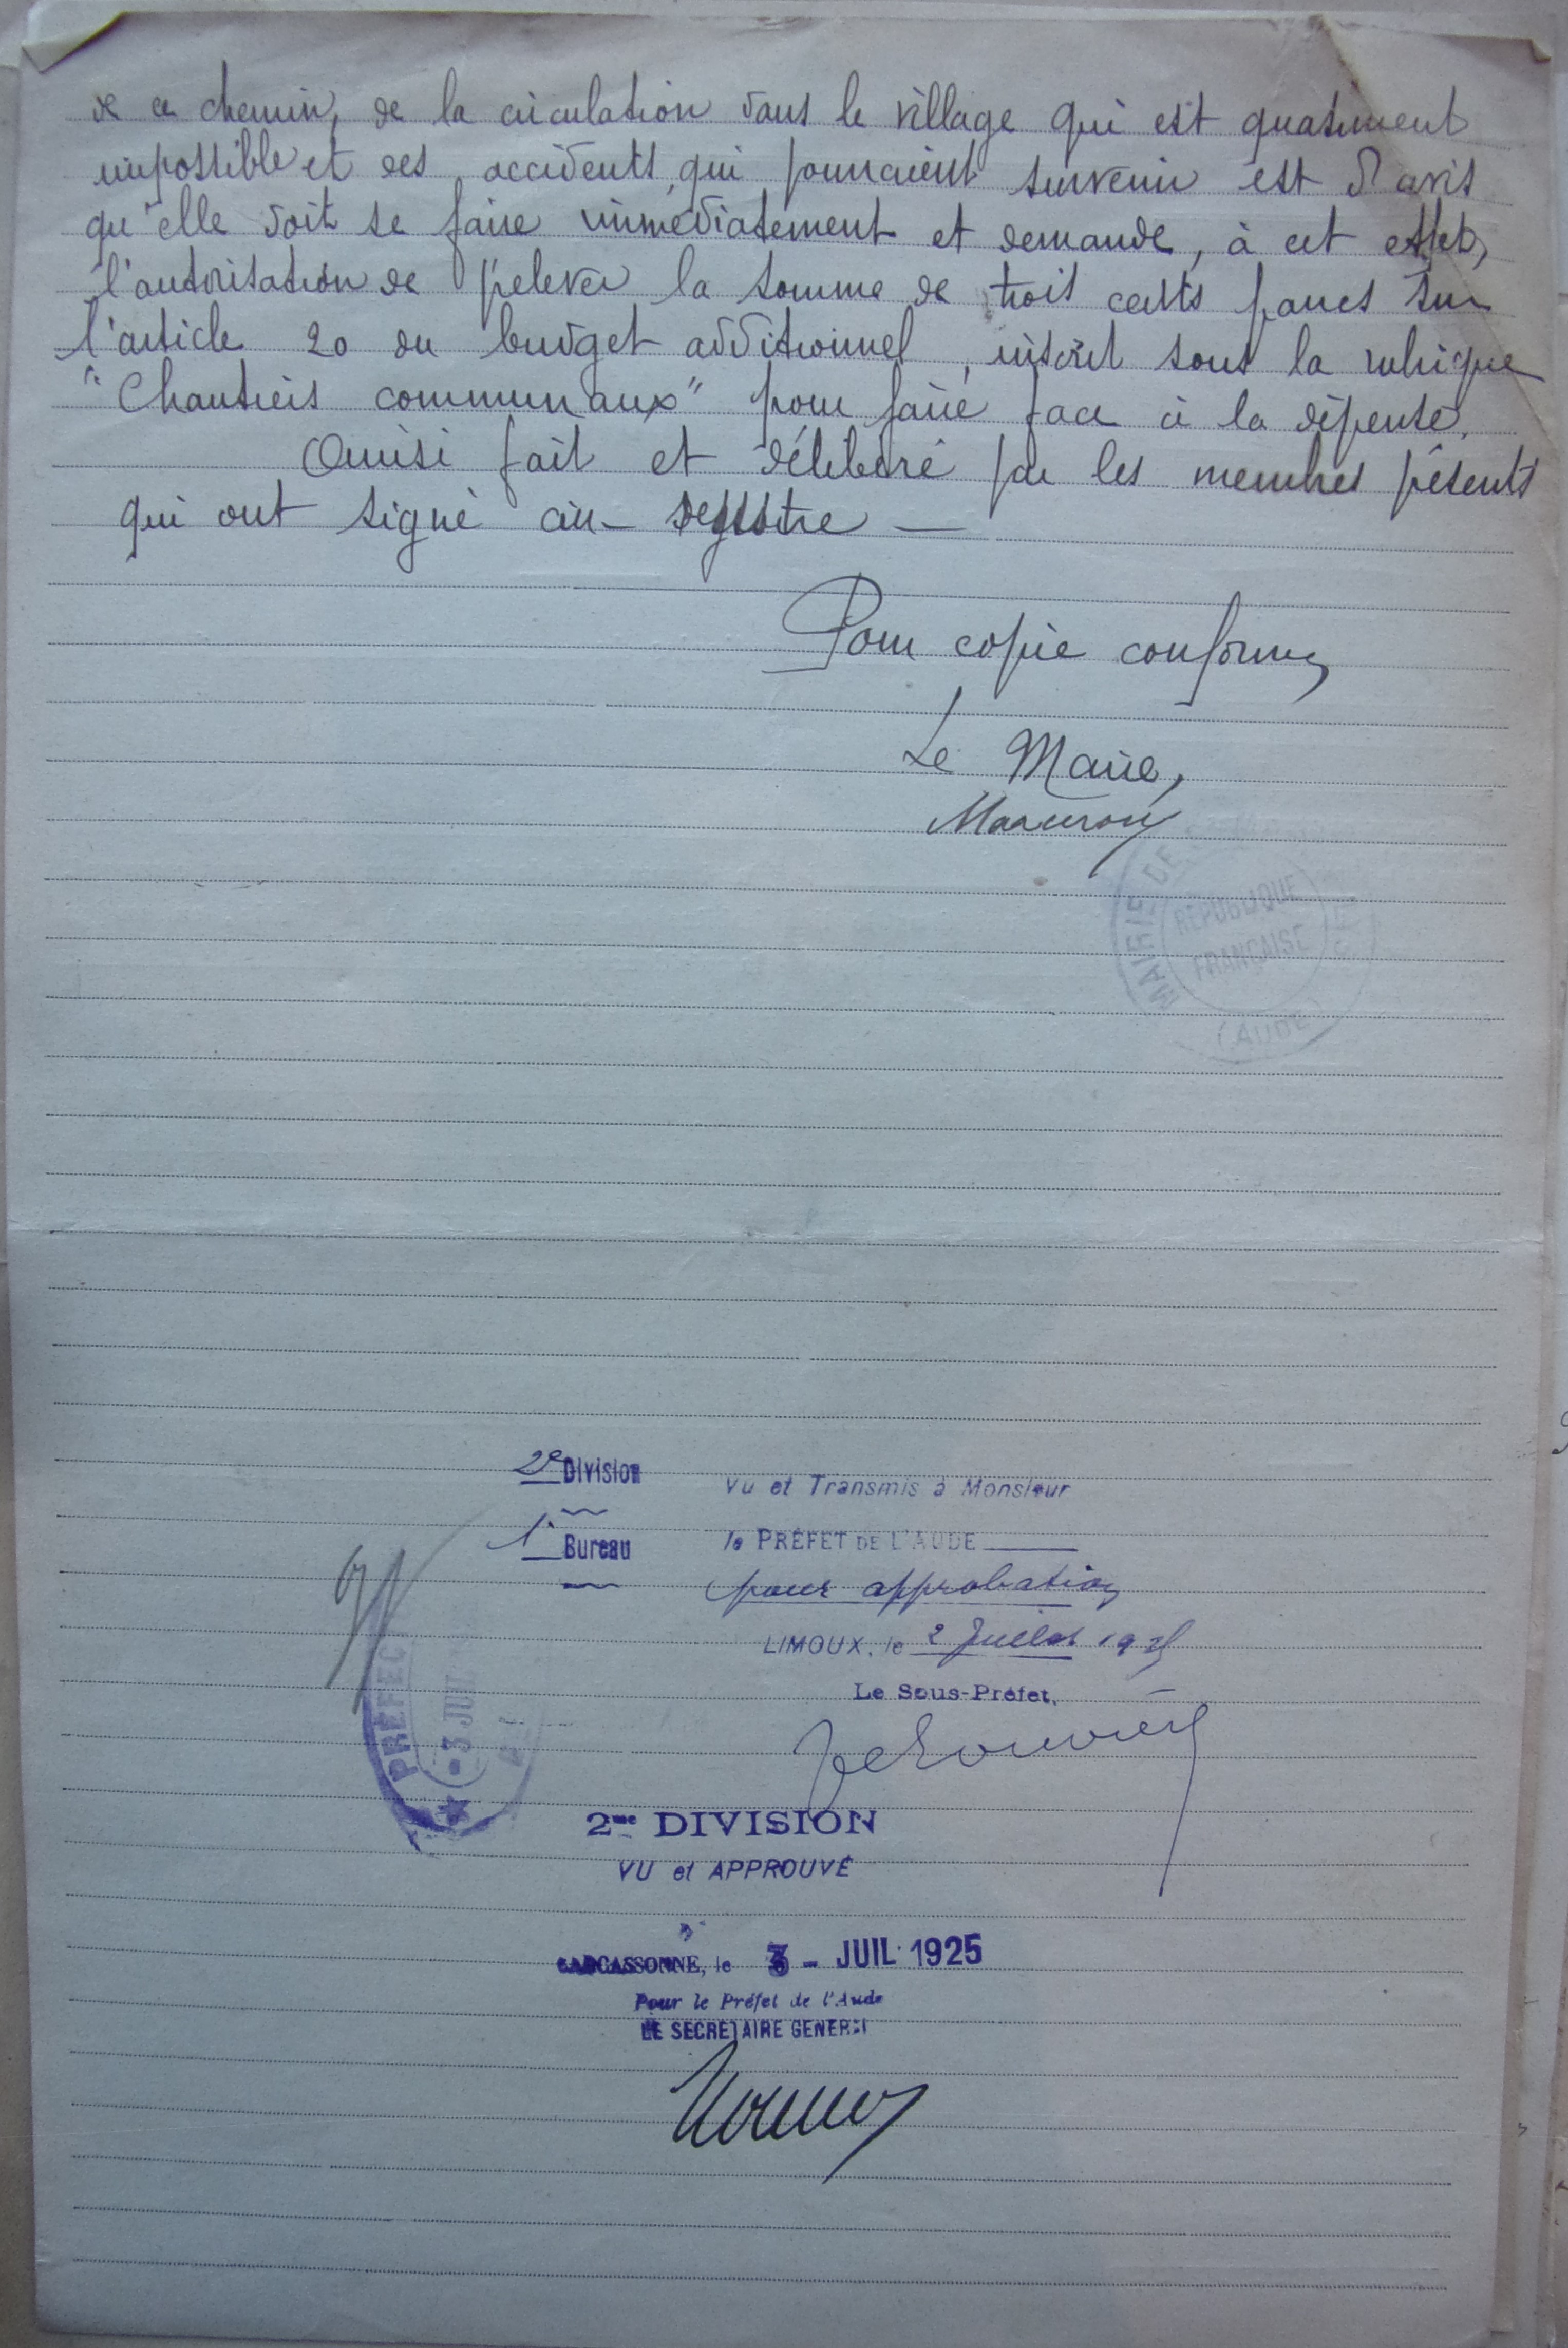 de ce chemin, de la circulation dans le village qui est quasiment
impossible et des accidents qui pourraient survenir est d'avis
qu'elle doit se faire immédiatement et demande, à cet effet,
l'autorisation de prélever la somme de trois cents francs sur
l'article 20 du budget additionnel, inscrit sous la rubrique
"Chantiers communaux" pour faire face à la dépense.
Ainsi fait et délibéré par les membres présents
qui ont signé au registre —
Pour copie conforme,
Le Maire,
MAIRIE DE
RÉPUBLIQUE
FRANÇAISE
(AUDE)
2e Division
Vu et Transmis à Monsieur
1r Bureau
le PRÉFET DE L'AUDE
pour approbation
LIMOUX, le 2 Juillet 1925
Le Sous-Préfet,
PREFEC
- 3 JUIL
2me DIVISION
VU et APPROUVÉ
CARCASSONNE, le 3 - JUIL 1925
Pour le Préfet de l'Aude
LE SECRETAIRE GENERAL